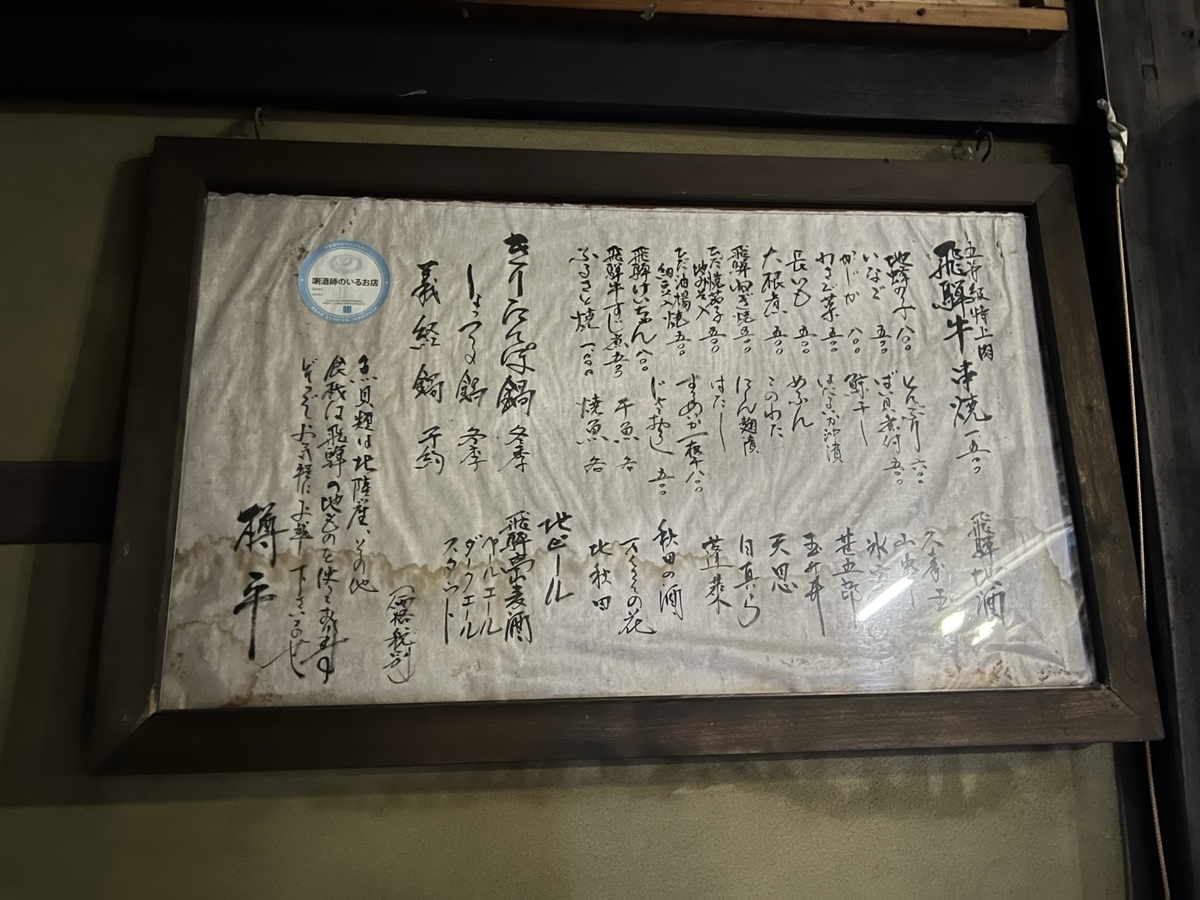 五等級特上肉
飛騨牛串焼 一五〇〇
地蜂の子 八〇〇
いなご 五〇〇
かじか 八〇〇
わさび菜 五〇〇
長いも 五〇〇
大根煮 五〇〇
飛騨ねぎ焼 五〇〇
ひだ焼茄子 五〇〇
地みそ入
ひだ油揚焼 五〇〇
納豆入
飛騨けいちゃん 八〇〇
飛騨牛すじ煮 五〇〇
ふるさと焼 一〇〇〇
とんぶり 六〇〇
ばい貝煮付 五〇〇
鱈干し
ほたるいか沖漬
めふん
このわた
にしん麹漬
はたし
するめいか一夜干 八〇〇
じゃこおろし 五〇〇
干魚 各
焼魚 各
きりたんぽ鍋 冬季
しょっつる鍋 冬季
義経鍋 予約
飛騨地酒
久寿玉
山車
氷室
甚五郎
玉の井
天恩
白真弓
蓬莱
秋田の酒
まんさくの花
北秋田
地ビール
飛騨高山麦酒
ペールエール
ダークエール
スタウト
(価格税別)
魚貝類は北陸産、その他
食材は飛騨の地ものを使っております
どうぞお気軽にお越し下さいませ
樽平
唎酒師のいるお店